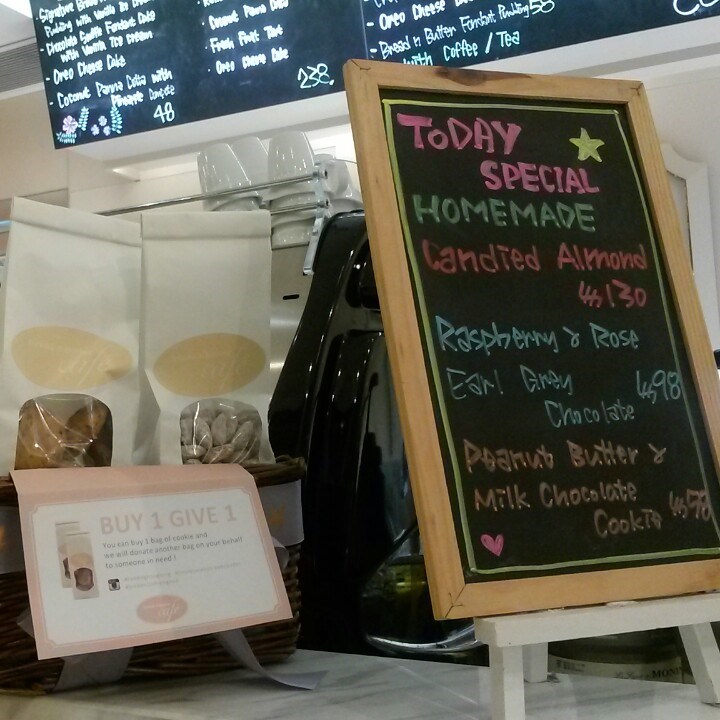 Signature Bread
Pudding with Vanilla Ice Cream
- Chocolate Fondant Cake
with Vanilla Ice cream
- Oreo Cheese Cake
- Coconut Panna Cotta with
48
Coconut Panna Cotta
Fresh Fruit Tart
Oreo Cheese Cake
238.
- Oreo Cheese
- Bread n Butter Pudding 58
with Coffee / Tea
TODAY
SPECIAL
HOMEMADE
Candied Almond
130
Raspberry & Rose
Earl Grey 98
Chocolate
Peanut Butter &
Milk Chocolate
Cookie 58
BUY 1 GIVE 1
You can buy 1 bag of cookie and
we will donate another bag on your behalf
to someone in need !
café